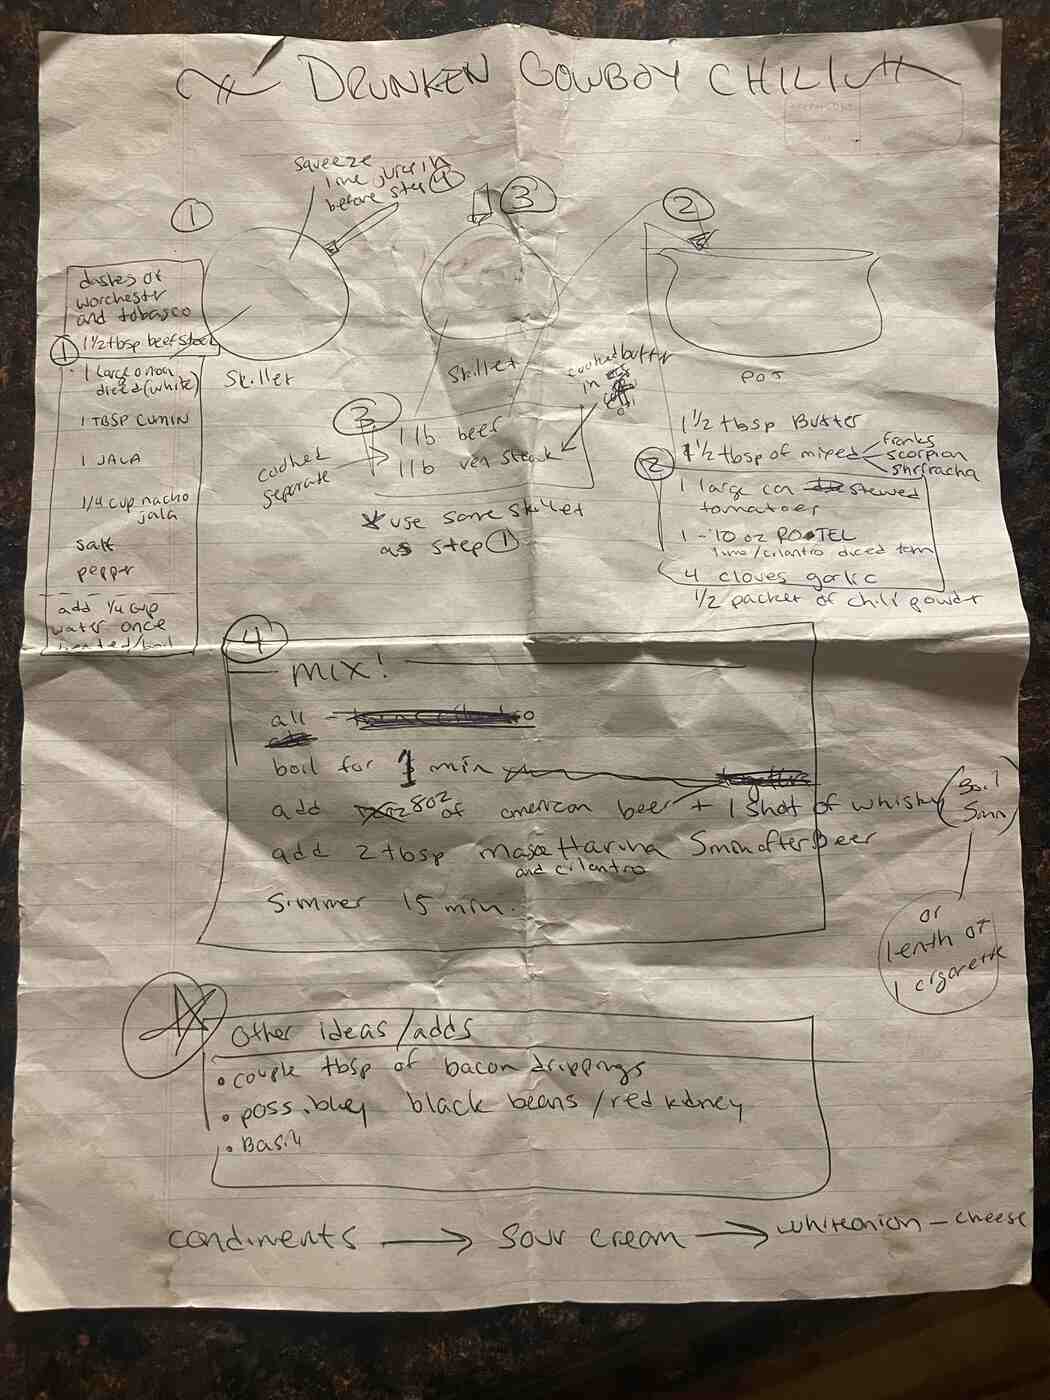 DRUNKEN COWBOY CHILI
squeeze
lime juice in
before step 4
1
3
2
dashes of
worchestr
and tobasco
1 1/2 tbsp beef stock
1
1 large onion
diced (white)
1 TBSP CUMIN
1 JALA
1/4 cup nacho
jala
salt
pepper
add 1/4 cup
water once
heated/boil
Skillet
Skillet
POT
cooked butter
in
3
cooked
separate
1 lb beef
1 lb ven steak
use same skillet
as step 1
1 1/2 tbsp Butter
2
1 1/2 tbsp of mixed
franks
scorpion
shriracha
1 large can stewed
tomatoes
1 - 10 oz RO*TEL
lime/cilantro diced tom
4 cloves garlic
1/2 packet of chili powdr
4
MIX!
all
boil for 1 min
add 8oz of american beer + 1 shot of whisky (Boil 5min)
add 2 tbsp Masa Harina 5min after Beer
and cilantro
Simmer 15 min.
or
lenth of
1 cigarette
Other ideas/adds
• couple tbsp of bacon drippings
• possibley black beans/red kidney
• Basil
condiments → Sour cream → white onion - cheese